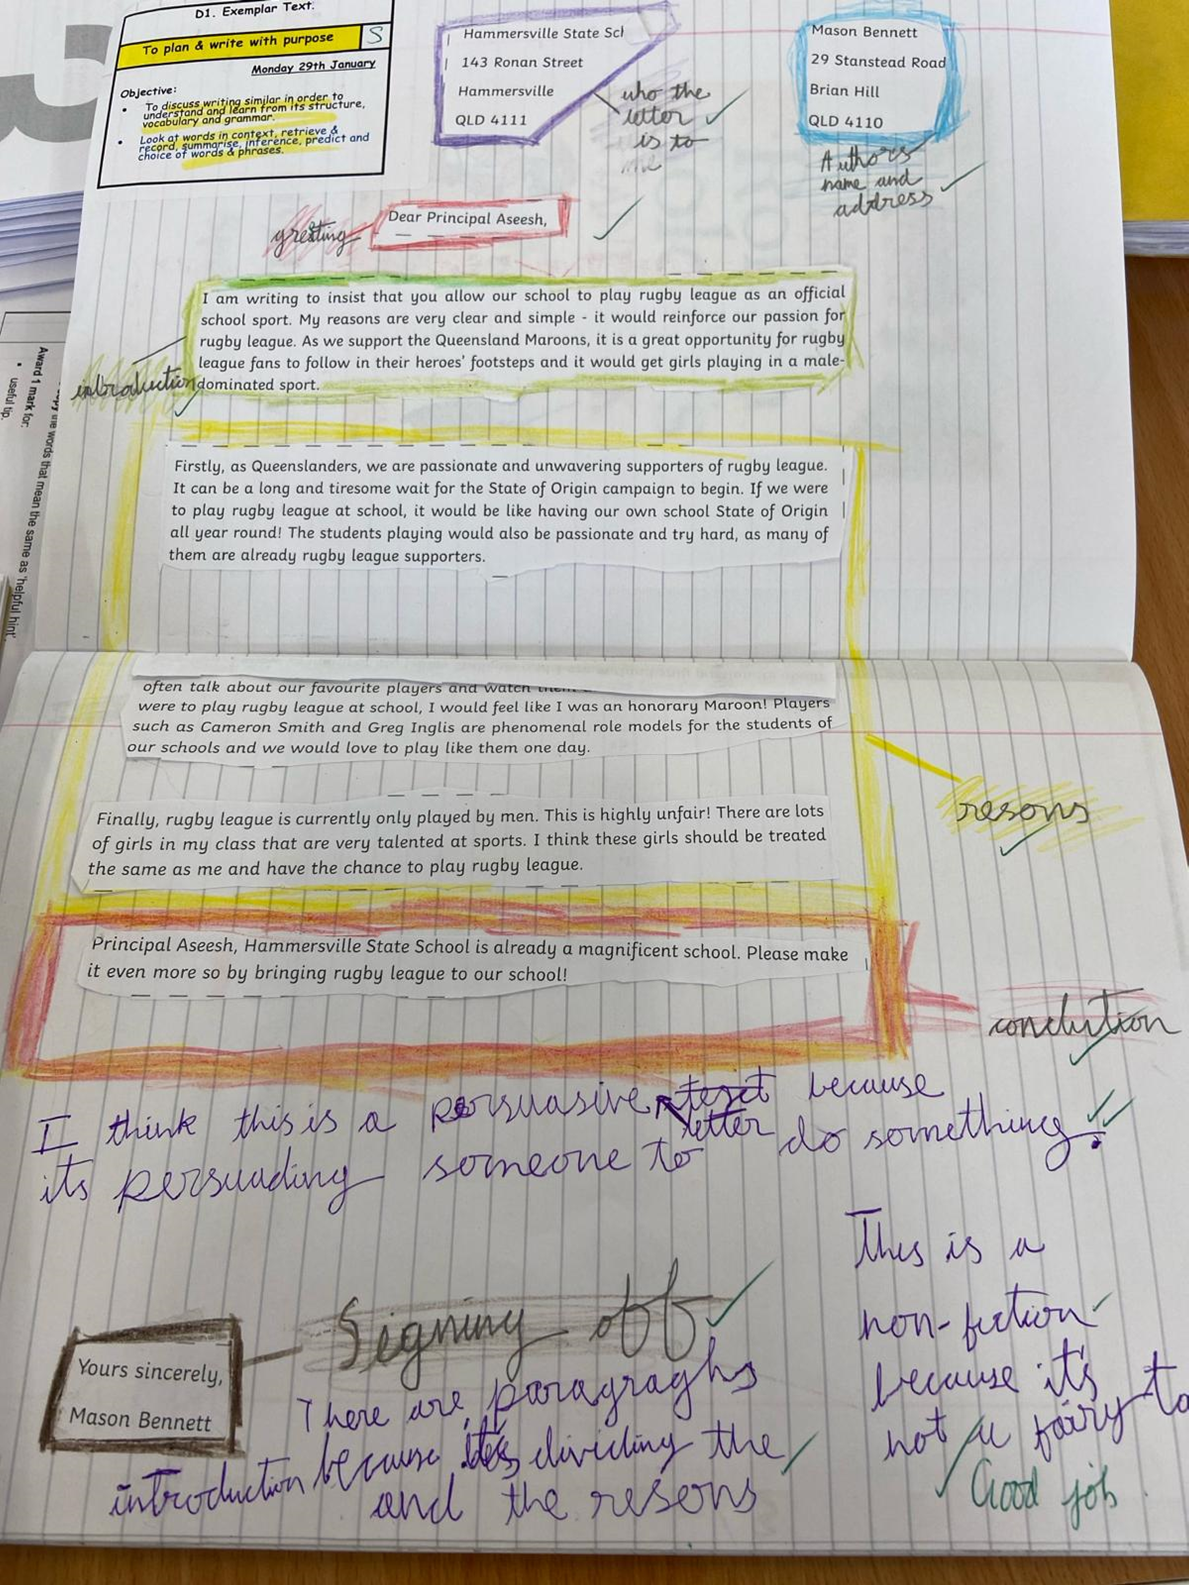 D1. Exemplar Text.
To plan & write with purpose
S
Monday 29th January
Objective:
• To discuss writing similar in order to
understand and learn from its structure,
vocabulary and grammar.
• Look at words in context, retrieve &
record, summarise, inference, predict and
choice of words & phrases.
Hammersville State Scl
143 Ronan Street
Hammersville
QLD 4111
who the
letter
is to
Mason Bennett
29 Stanstead Road
Brian Hill
QLD 4110
Authors
name and
address
greeting
Dear Principal Aseesh,
I am writing to insist that you allow our school to play rugby league as an official
school sport. My reasons are very clear and simple - it would reinforce our passion for
rugby league. As we support the Queensland Maroons, it is a great opportunity for rugby
league fans to follow in their heroes' footsteps and it would get girls playing in a male-
dominated sport.
introduction
Award 1 mark for:
• useful tip.
the words that mean the same as 'helpful hint'.
Firstly, as Queenslanders, we are passionate and unwavering supporters of rugby league.
It can be a long and tiresome wait for the State of Origin campaign to begin. If we were
to play rugby league at school, it would be like having our own school State of Origin
all year round! The students playing would also be passionate and try hard, as many of
them are already rugby league supporters.
often talk about our favourite players and watch
were to play rugby league at school, I would feel like I was an honorary Maroon! Players
such as Cameron Smith and Greg Inglis are phenomenal role models for the students of
our schools and we would love to play like them one day.
resons
Finally, rugby league is currently only played by men. This is highly unfair! There are lots
of girls in my class that are very talented at sports. I think these girls should be treated
the same as me and have the chance to play rugby league.
Principal Aseesh, Hammersville State School is already a magnificent school. Please make
it even more so by bringing rugby league to our school!
conclution
I think this is a persuasive text because
letter
its persuading someone to do something.
Signing off
Yours sincerely,
Mason Bennett
There are paragraghs
because its dividing the
introduction and the resons
This is a
non-fiction
because it's
not a fairy ta
Good job